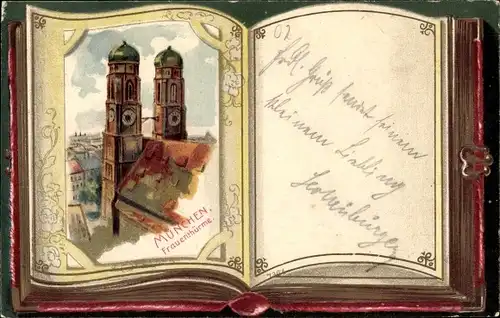 MÜNCHEN.
Frauenthürme.
02
frdl. Gruß sendet seinem
kleinen Liebling